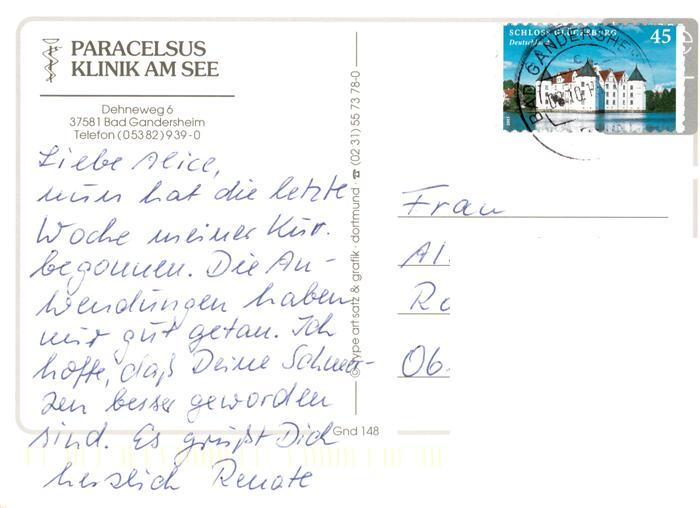 PARACELSUS
KLINIK AM SEE
Dehneweg 6
37581 Bad Gandersheim
Telefon (05382) 939-0
Liebe Alice,
nun hat die letzte
Woche meiner Kur
begonnen. Die An-
wendungen haben
mir gut getan. Ich
hoffe, daß Deine Schmer-
zen besser geworden
sind. Es grüßt Dich
herzlich Renate
© type art satz & grafik · dortmund · ☎ (02 31) 55 73 78-0
Gnd 148
SCHLOSS GLÜCKSBURG
Deutschland
45
BAD GANDERSHE
Frau
Al
Ro
Ob